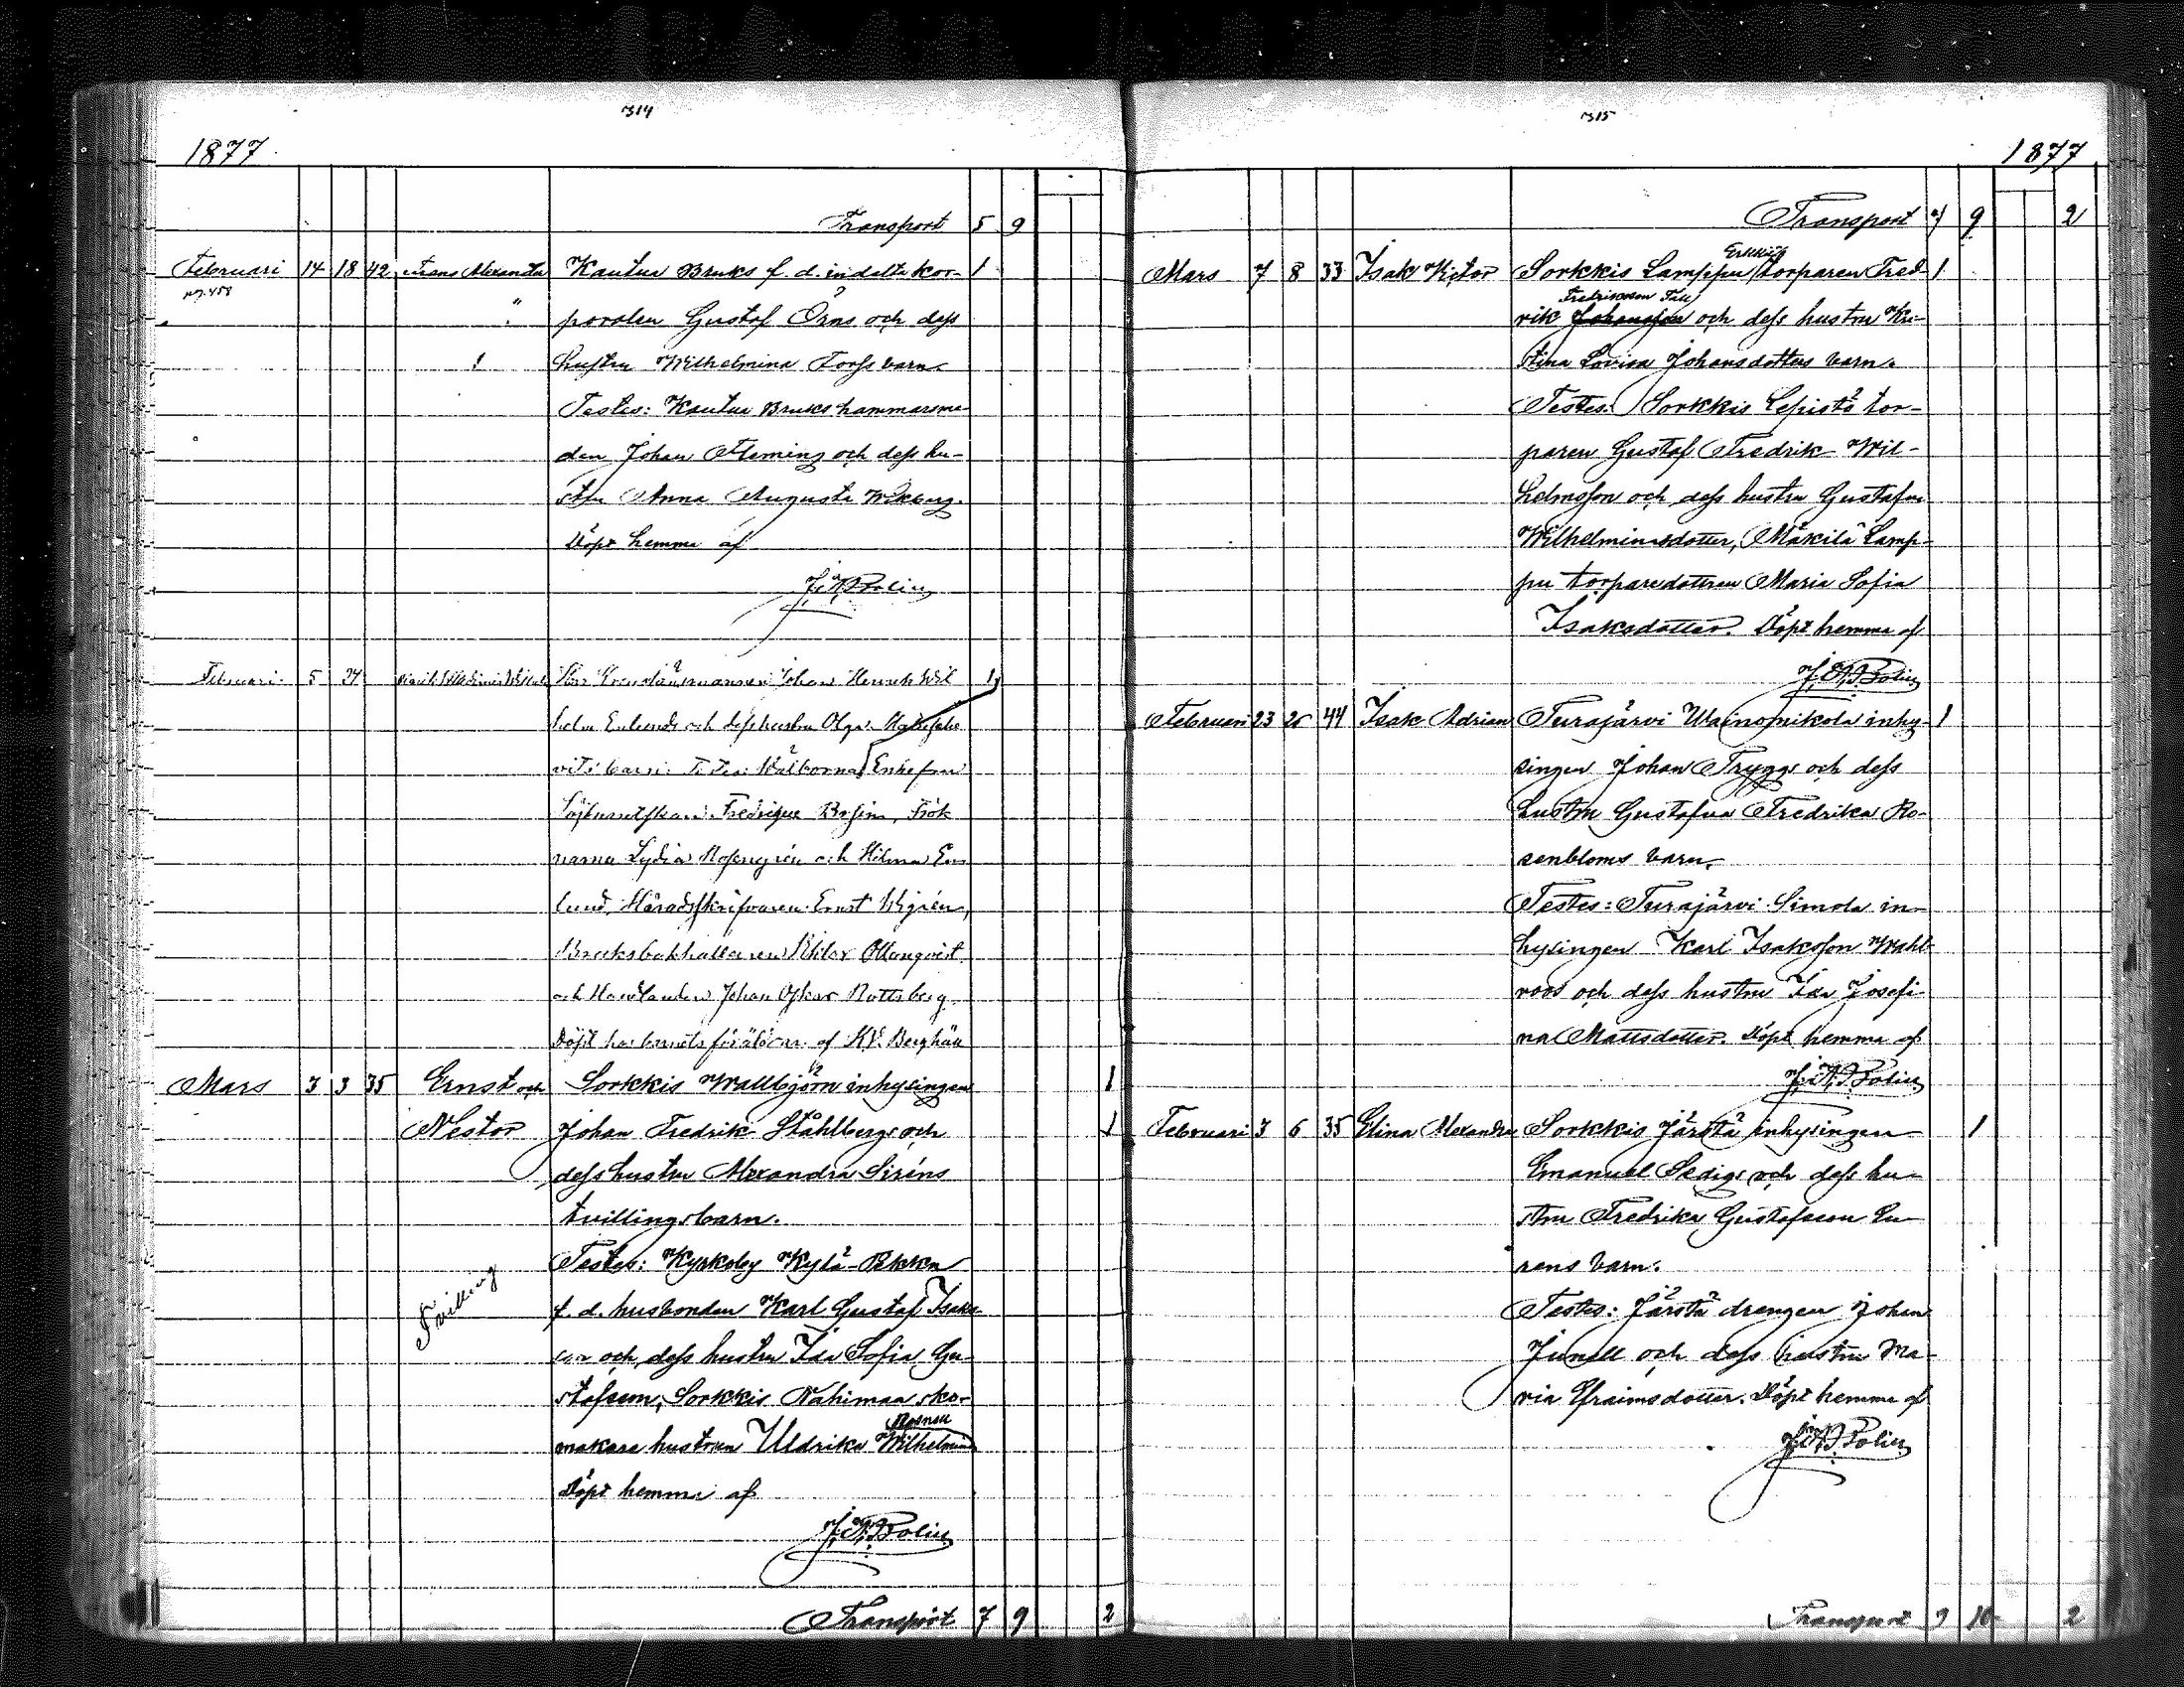 314
1877
Transport 5 9
Februari 14 18 42 Frans Alexander Kautua Bruks f. d. indelta kor- 1
pag. 458
poralen Gustaf Örns och dess
hustru Wilhelmina Forss barn.
Testes: Kautua Bruks hammarsme-
den Johan Fleming och dess hu-
stru Anna Augusta Wikberg.
Döpt hemma af
Februari 5 24 Johan Henrik Wil 1
helm Enlunds och dess hustru Olga
Enkefru
Fredrique Frök
narna Lydia Rosengrén och Hilma En
lund, Häradsskrifvaren Ernst
Bruksbokhållaren
och Johan Oskar Rottsberg.
Döpt hos barnets föräldrar af K. V. Berghäll
Mars 3 3 35 Ernst och Sorkkis Wallbjörn inhysingen 1
Nestor Johan Fredrik Ståhlbergs och 1
dess hustru Alexandra Siréns
tvillingsbarn.
Testes: Kyrkoby Kylä-Pekka
Tvilling
f. d. husbonden Karl Gustaf Isaks-
son och dess hustru Ida Sofia Gu-
stafsson, Sorkkis Nahimaa sko-
makare hustrun Uldrika Wilhelmina
Döpt hemma af
Transport 7 9 2
315
1877
Transport 7 9 2
Mars 7 8 33 Isak Victor Sorkkis Lamppu Erkkilä torparen Fred- 1
Fredriksson
rik Johansson och dess hustru Kri-
stina Lovisa Johansdotters barn.
Testes: Sorkkis Lepistö tor-
paren Gustaf Fredrik Wil-
helmsson och dess hustru Gustafva
Wilhelminasdotter, Mäkilä Lamp-
pu torparedottren Maria Sofia
Isaksdotter. Döpt hemma af
Februari 23 25 44 Isak Adrian Turajärvi Uainomikola inhy- 1
singen Johan Tryggs och dess
hustru Gustafva Fredrika Ro-
senbloms barn.
Testes: Turajärvi Simola in-
hysingen Karl Isaksson Wahl-
roos och dess hustru Ida Josefi-
na Mattsdotter. Döpt hemma af
Februari 3 6 35 Elina Alexandra Sorkkis Järstä inhysingen 1
Emanuel Sedigs och dess hu-
stru Fredrika Gustafsson Lu-
rens barn.
Testes: Järstä drengen Johan
Junell och dess hustru Ma-
ria Efraimsdotter. Döpt hemma af
Transport 9 10 2